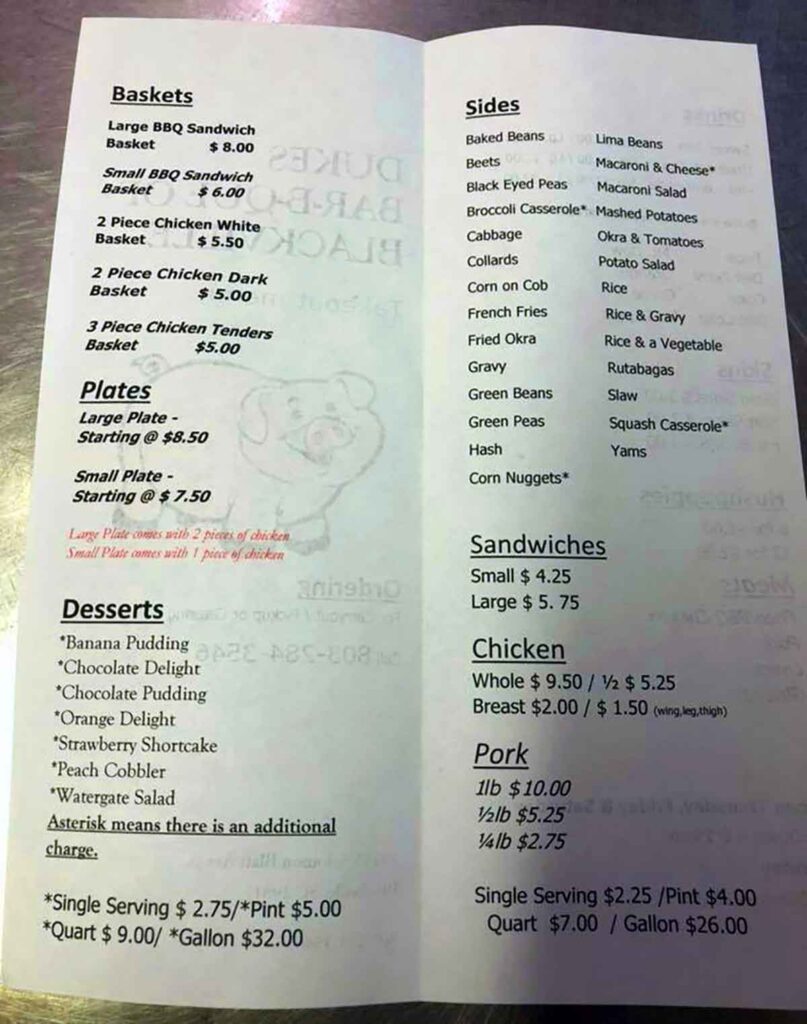 Baskets
Large BBQ Sandwich
Basket $ 8.00
Small BBQ Sandwich
Basket $ 6.00
2 Piece Chicken White
Basket $ 5.50
2 Piece Chicken Dark
Basket $ 5.00
3 Piece Chicken Tenders
Basket $5.00
Plates
Large Plate -
Starting @ $8.50
Small Plate -
Starting @ $ 7.50
Large Plate comes with 2 pieces of chicken
Small Plate comes with 1 piece of chicken
Desserts
*Banana Pudding
*Chocolate Delight
*Chocolate Pudding
*Orange Delight
*Strawberry Shortcake
*Peach Cobbler
*Watergate Salad
Asterisk means there is an additional
charge.
*Single Serving $ 2.75/*Pint $5.00
*Quart $ 9.00/ *Gallon $32.00
Sides
Baked Beans Lima Beans
Beets Macaroni & Cheese*
Black Eyed Peas Macaroni Salad
Broccoli Casserole* Mashed Potatoes
Cabbage Okra & Tomatoes
Collards Potato Salad
Corn on Cob Rice
French Fries Rice & Gravy
Fried Okra Rice & a Vegetable
Gravy Rutabagas
Green Beans Slaw
Green Peas Squash Casserole*
Hash Yams
Corn Nuggets*
Sandwiches
Small $ 4.25
Large $ 5. 75
Chicken
Whole $ 9.50 / ½ $ 5.25
Breast $2.00 / $ 1.50 (wing,leg,thigh)
Pork
1lb $10.00
½lb $5.25
¼lb $2.75
Single Serving $2.25 /Pint $4.00
Quart $7.00 / Gallon $26.00
DUKES
BAR-B-QUE OF
Ordering
803-284-3546
Drinks
Skins
Hushpuppies
Meats